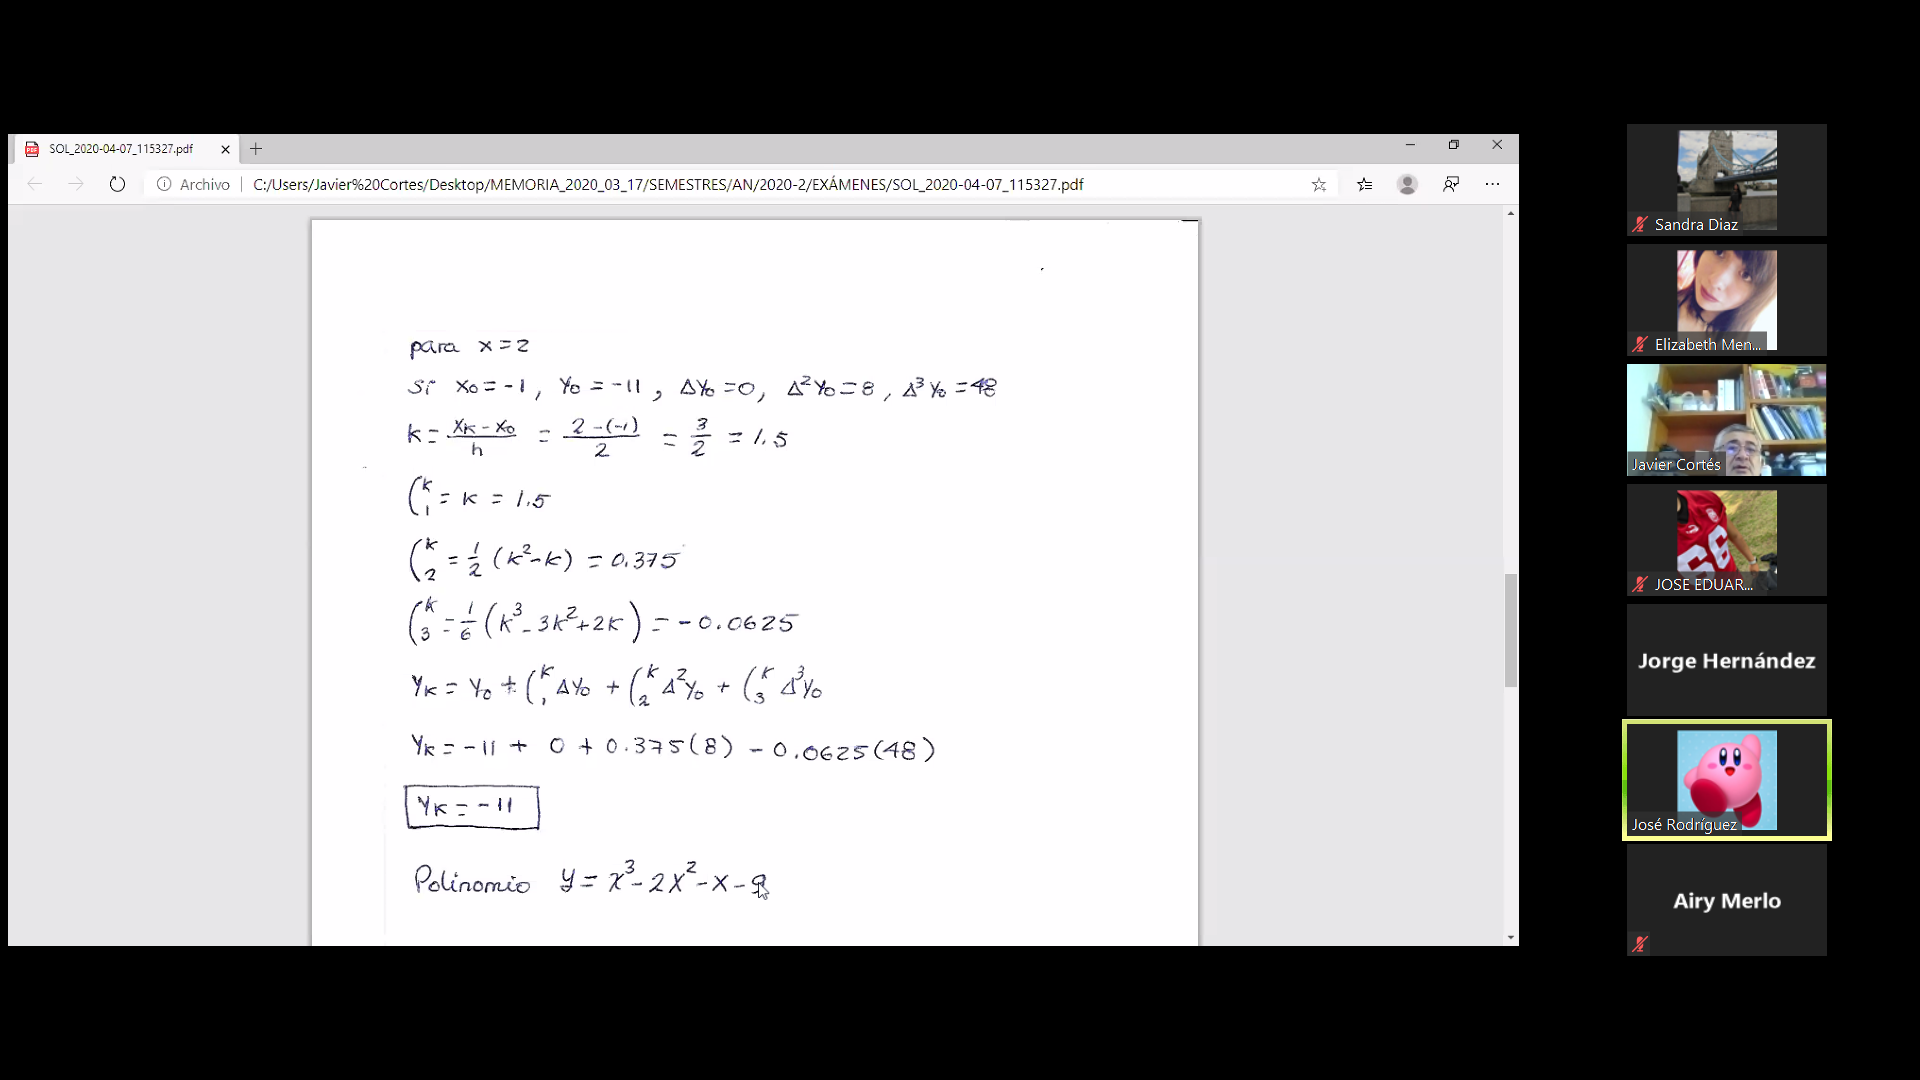 SOL_2020-04-07_115327.pdf
Archivo | C:/Users/Javier%20Cortes/Desktop/MEMORIA_2020_03_17/SEMESTRES/AN/2020-2/EXÁMENES/SOL_2020-04-07_115327.pdf
para x = 2
Si x₀ = -1 , Y₀ = -11 , ΔY₀ = 0, Δ²Y₀ = 8 , Δ³Y₀ = 48
k = (x_k - x₀)/h = (2 - (-1))/2 = 3/2 = 1.5
(ᵏ₁ = k = 1.5
(ᵏ₂ = 1/2 (k² - k) = 0.375
(ᵏ₃ = 1/6 (k³ - 3k² + 2k) = - 0.0625
Y_k = Y₀ + (ᵏ₁ ΔY₀ + (ᵏ₂ Δ²Y₀ + (ᵏ₃ Δ³Y₀
Y_k = -11 + 0 + 0.375(8) - 0.0625(48)
Y_k = -11
Polinomio y = x³ - 2x² - x - 9
Sandra Diaz
Elizabeth Men...
Javier Cortés
JOSE EDUAR...
66
Jorge Hernández
José Rodríguez
Airy Merlo